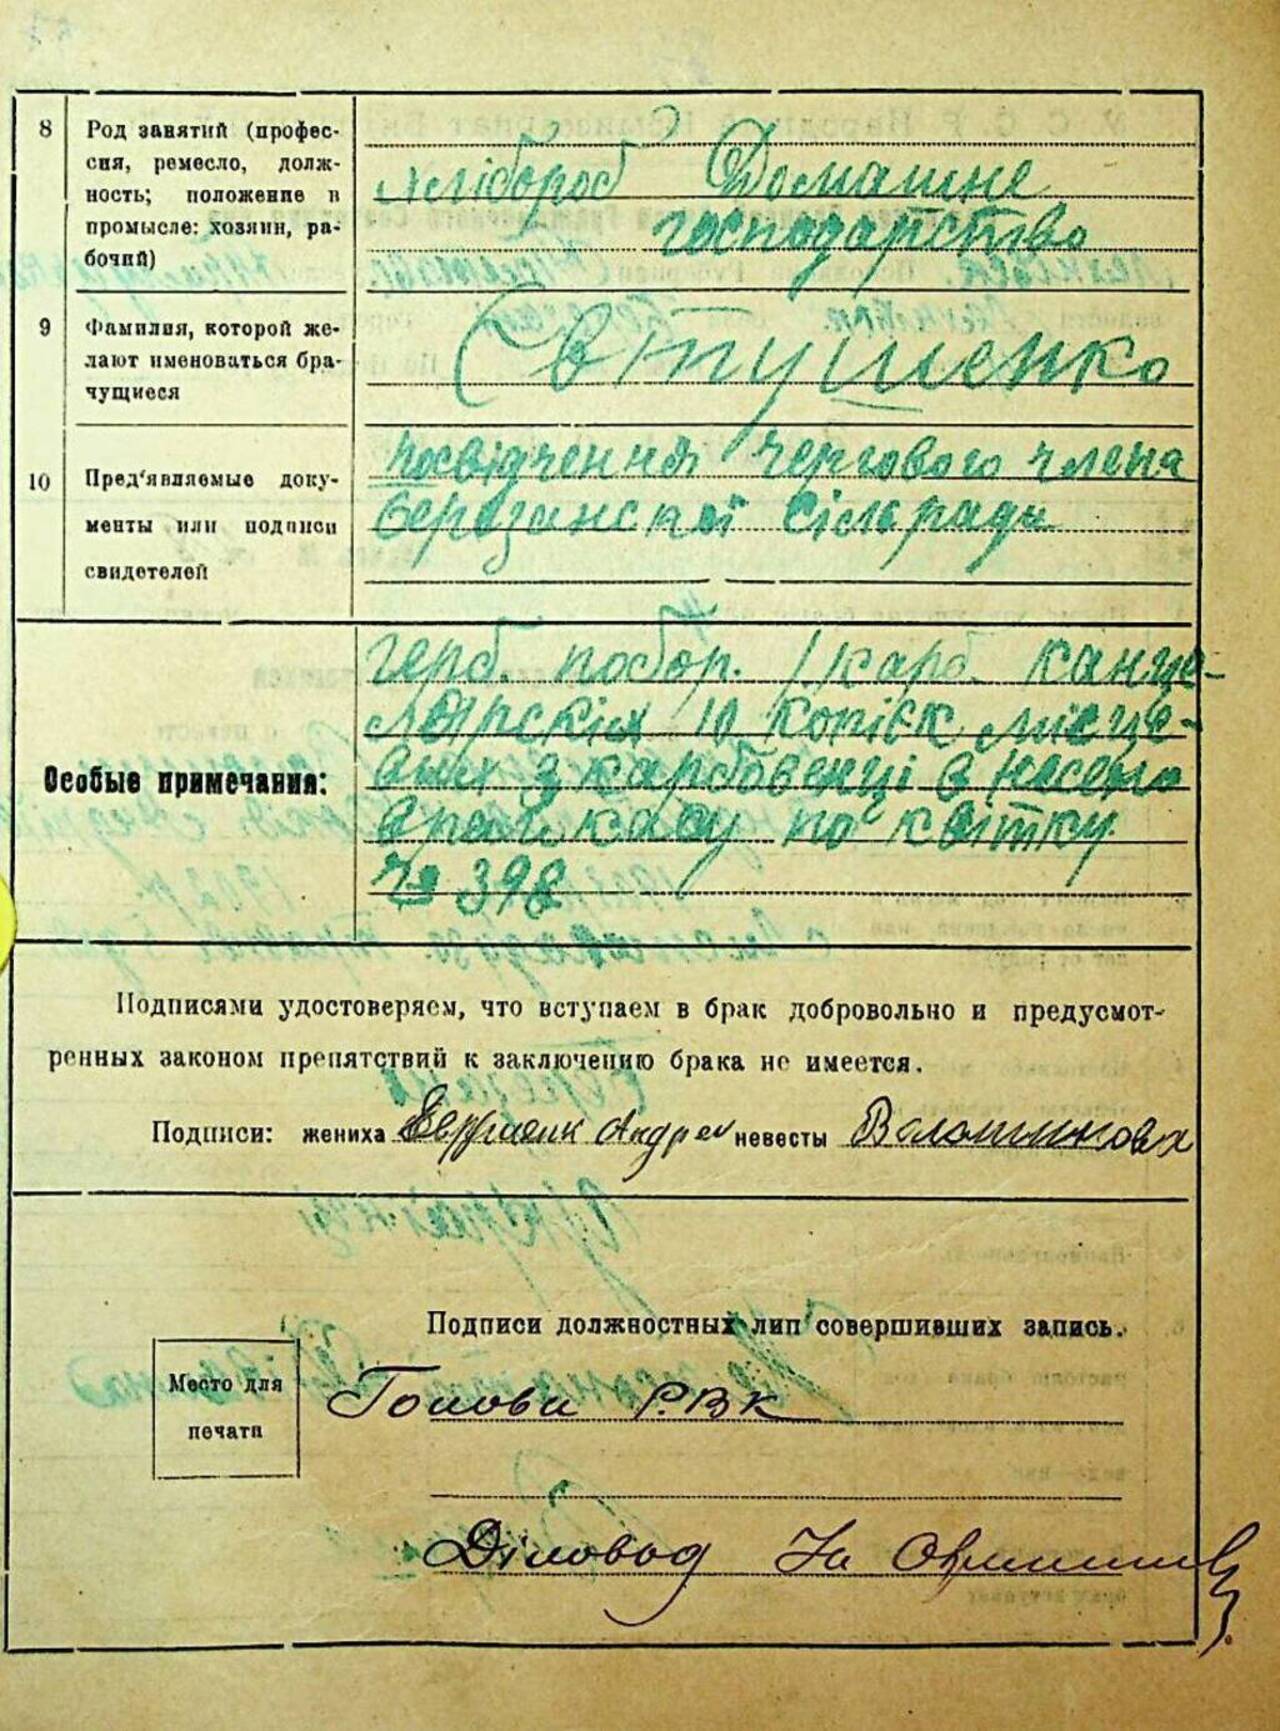 8
Род занятий (профес-
сия, ремесло, долж-
ность; положение в
промысле: хозяин, ра-
бочий)
хлібороб Домашнє
господарство
9
Фамилия, которой же-
лают именоваться бра-
чущиеся
Євтушенко
10
Пред'являемые доку-
менты или подписи
свидетелей
посвідчення чергового члена
Березанскої Сільради
Особые примечания:
герб. побор. 1 карб. канце-
лярских 10 копієк місце-
вих 3 карбованці в несено
в рай касу по квітку
№ 398
Подписями удостоверяем, что вступаем в брак добровольно и предусмот-
ренных законом препятствий к заключению брака не имеется.
Подписи: жениха Андрей невесты Волошинова
Подписи должностных лиц совершивших запись.
Место для
печати
Голови РВК
Діловод